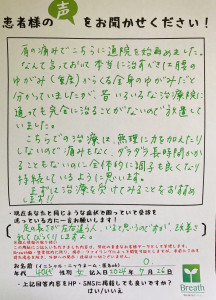 患者様の声をお聞かせください！
首の痛みでこちらに通院を始めました。
なんて言っても本当に治すべきは腰の
ゆがみ(骨盤)からくる全身のゆがみだと
分かっていましたが、昔いろいろな治療院に
通っても完全に治ることがないので放置し
ていました。
こちらでの治療は、無理に力を加えたり
しないので痛みもなく、ダラダラ長時間かか
ることもないのに全体的に調子も良くなり
持続しているように思います。
まずは治療を受けてみることを
・現在あなたと同じような症状で困っていて受診を
迷っている方に一言お願いします！
足の長さが左右違う人、いると思うのですが、改善さ
れてびっくりしますよ。
お名前（イニシャル・ニックネーム・匿名OK）
年代 40代 性別 女 記入日 2024年 7月 26日
・上記回答内容をHP・SNSに掲載しても良いですか？
はい/いいえ
Breath